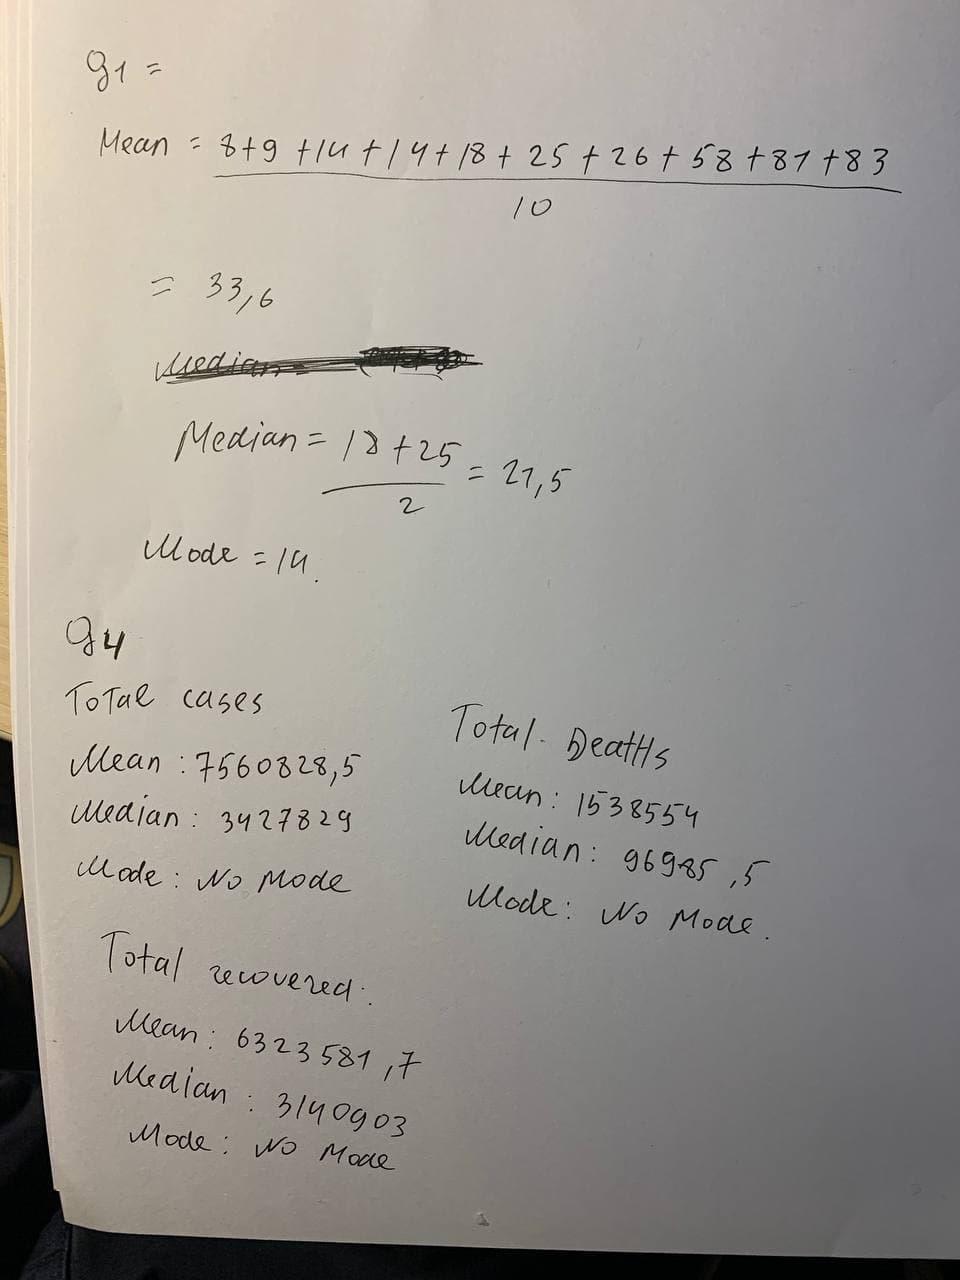 g1 =
Mean = 8+9+14+14+18+25+26+58+81+83
10
= 33,6
Median =
Median = 18+25
2
= 21,5
Mode = 14.
g4
Total cases
Mean : 7560828,5
Median : 3427829
Mode : No Mode
Total Deaths
Mean : 1538554
Median : 96985,5
Mode : No Mode.
Total recovered :
Mean : 6323581,7
Median : 3140903
Mode : No Mode